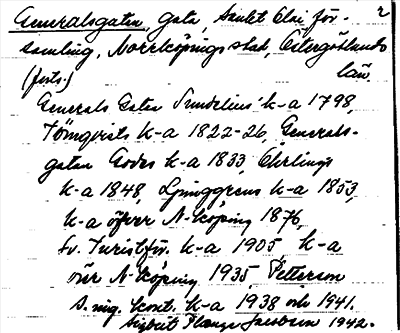 Generalsgatan, gata, Sankt Olai för- 2
samling, Norrköpings stad, Östergötlands
(forts.) län.
Generals Gatan Sundelius' k-a 1798,
Törnqvists k-a 1822-26, Generals-
gatan Godes k-a 1833, Ehrlings
k-a 1848, Ljunggrens k-a 1853,
k-a öfver N-köping 1876,
Sv. Turistför. k-a 1905 k-a
över N-köping 1935, Petterson
k-a 1938 och 1941.
Jacobson 1942.